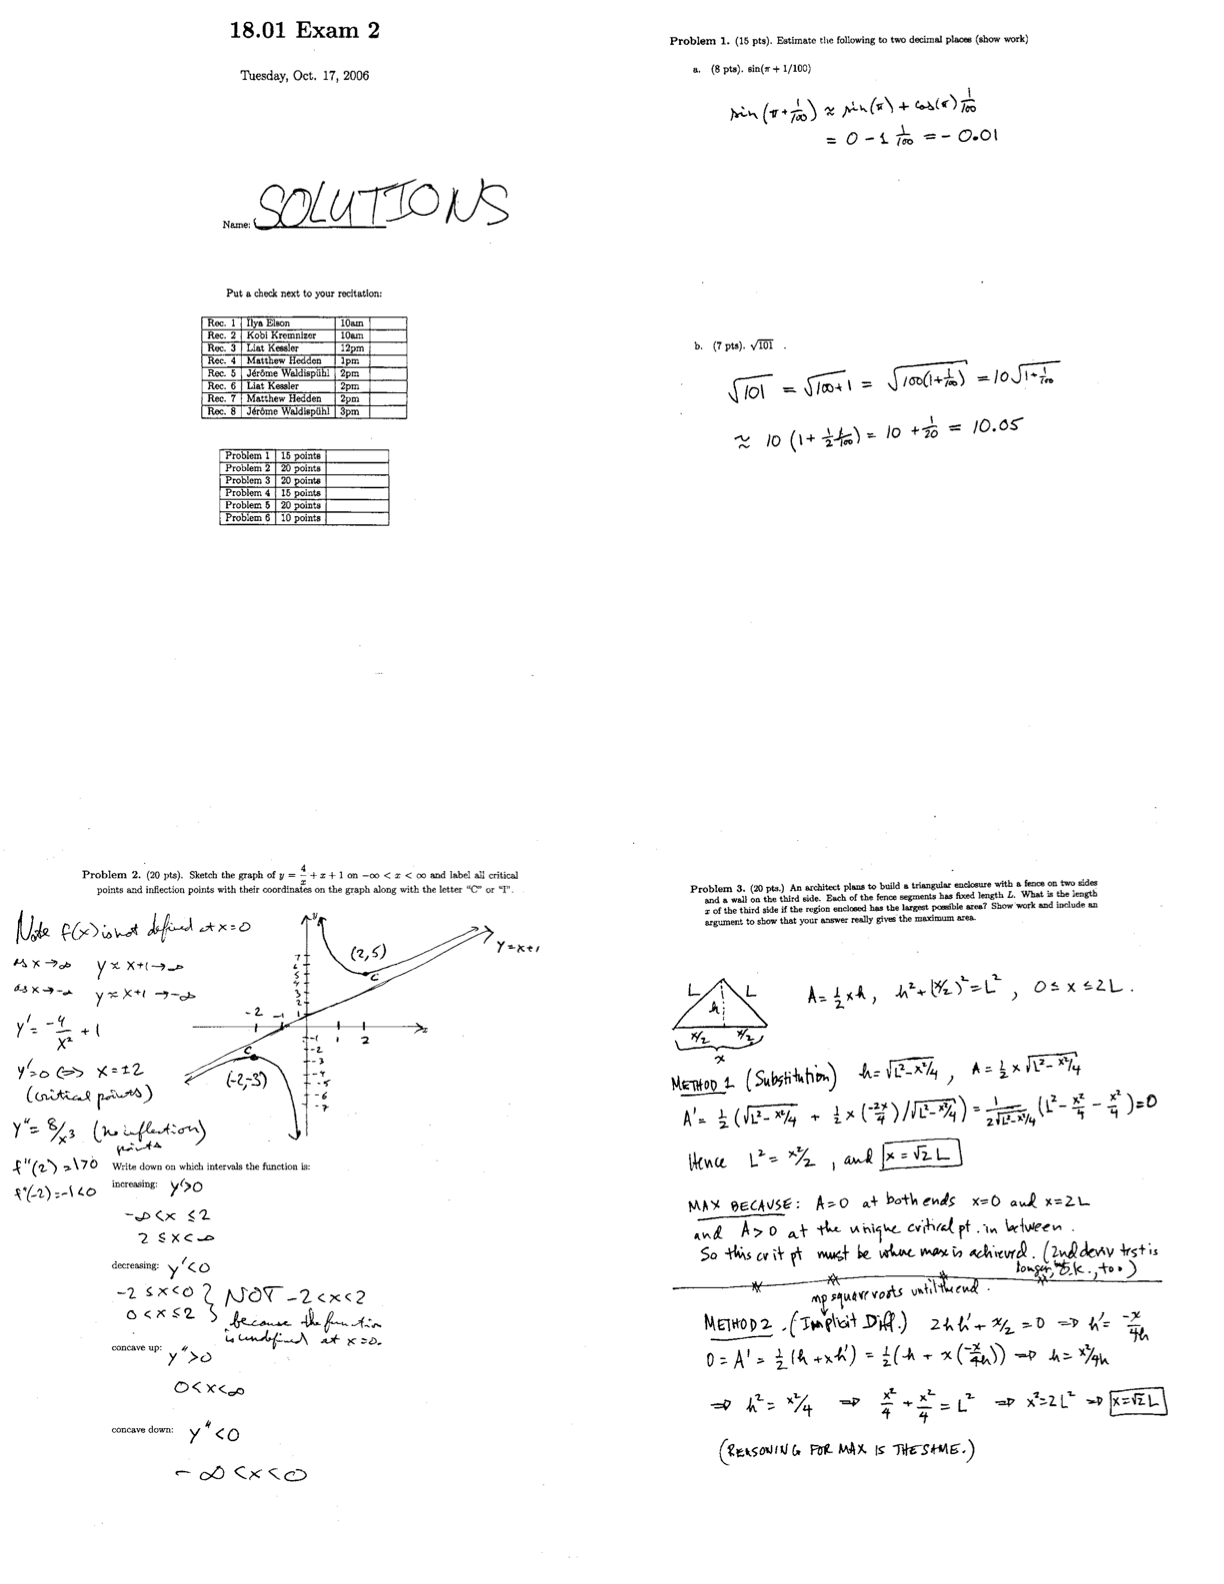 18.01 Exam 2
Tuesday, Oct. 17, 2006
Name: SOLUTIONS
Put a check next to your recitation:
Rec. 1 Ilya Elson 10am
Rec. 2 Kobi Kremnizer 10am
Rec. 3 Liat Kessler 12pm
Rec. 4 Matthew Hedden 1pm
Rec. 5 Jérôme Waldispühl 2pm
Rec. 6 Liat Kessler 2pm
Rec. 7 Matthew Hedden 2pm
Rec. 8 Jérôme Waldispühl 3pm
Problem 1 15 points
Problem 2 20 points
Problem 3 20 points
Problem 4 15 points
Problem 5 20 points
Problem 6 10 points
Problem 1. (15 pts). Estimate the following to two decimal places (show work)
a. (8 pts). sin(π + 1/100)
sin(π+1/100) ≈ sin(π) + cos(π) 1/100
= 0 - 1 1/100 = - 0.01
b. (7 pts). √101 .
√101 = √100+1 = √100(1+1/100) = 10√1+1/100
≈ 10 (1+ 1/2 1/100) = 10 + 1/20 = 10.05
Problem 2. (20 pts). Sketch the graph of y = 4/x + x + 1 on −∞ < x < ∞ and label all critical
points and inflection points with their coordinates on the graph along with the letter "C" or "I".
Note f(x) is not defined at x=0
as x→∞ y ≈ x+1→∞
as x→-∞ y ≈ x+1 →-∞
y' = -4/x² + 1
y'=0 <=> x=±2
(critical points)
y"= 8/x³ (no inflection)
points
f"(2) =1>0
f"(-2)=-1<0
y
7
6
5
4
3
2
1
(2,5)
C
y=x+1
-2 -1
1 2
x
-1
-2
-3
-4
-5
-6
-7
C
(-2,-3)
Write down on which intervals the function is:
increasing: y'>0
-∞<x ≤2
2 ≤x<∞
decreasing: y'<0
-2 ≤x<0 } NOT -2<x<2
0<x≤2 } because the function
is undefined at x=0.
concave up: y">0
0<x<∞
concave down: y"<0
-∞<x<0
Problem 3. (20 pts.) An architect plans to build a triangular enclosure with a fence on two sides
and a wall on the third side. Each of the fence segments has fixed length L. What is the length
x of the third side if the region enclosed has the largest possible area? Show work and include an
argument to show that your answer really gives the maximum area.
L L
h
x/2 x/2
x
A= 1/2 xh, h²+(x/2)²=L², 0≤x≤2L.
METHOD 1 (Substitution) h=√L²-x²/4, A= 1/2 x √L²-x²/4
A'= 1/2 (√L²-x²/4 + 1/2 x (-2x/4)/√L²-x²/4) = 1/2√L²-x²/4 (L²- x²/4 - x²/4)=0
Hence L²= x²/2, and x=√2 L
MAX BECAUSE: A=0 at both ends x=0 and x=2L
and A>0 at the unique critical pt. in between.
So this crit pt must be where max is achieved. (2nd deriv test is
longer, O.K., too.)
no square roots until the end.
METHOD 2. (Implicit Diff.) 2hh'+ x/2 =0 ⇒ h'= -x/4h
0=A'= 1/2(h+xh') = 1/2(h + x(-x/4h)) ⇒ h= x²/4h
⇒ h²= x²/4 ⇒ x²/4 + x²/4 = L² ⇒ x²=2L² ⇒ x=√2 L
(REASONING FOR MAX IS THE SAME.)